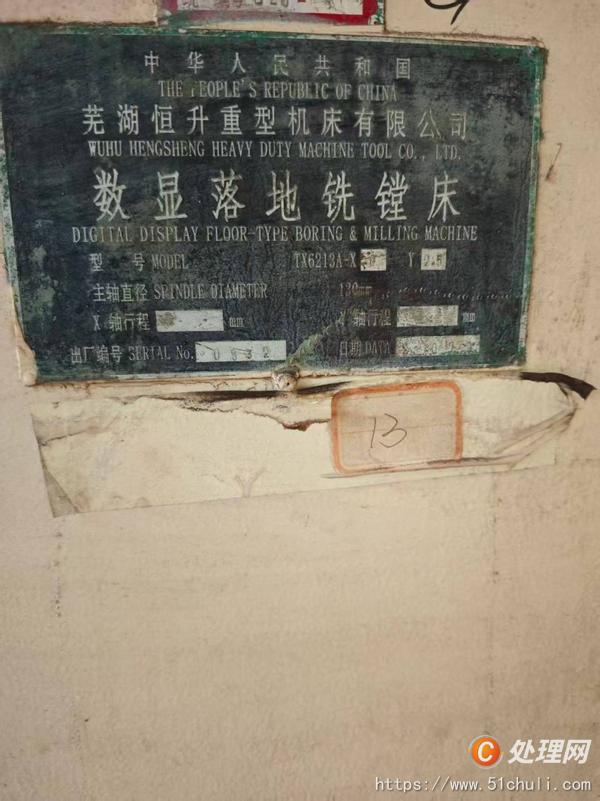 中华人民共和国
THE PEOPLE'S REPUBLIC OF CHINA
芜湖恒升重型机床有限公司
WUHU HENGSHENG HEAVY DUTY MACHINE TOOL CO., LTD.
数显落地铣镗床
DIGITAL DISPLAY FLOOR-TYPE BORING & MILLING MACHINE
型 号 MODEL TX6213A-X Y 2.5
主轴直径 SPINDLE DIAMETER 130mm
X 轴行程 mm 轴行程 mm
出厂编号 SERIAL No. 0832 日期 DATA
13
处理网
https://www.51chuli.com/